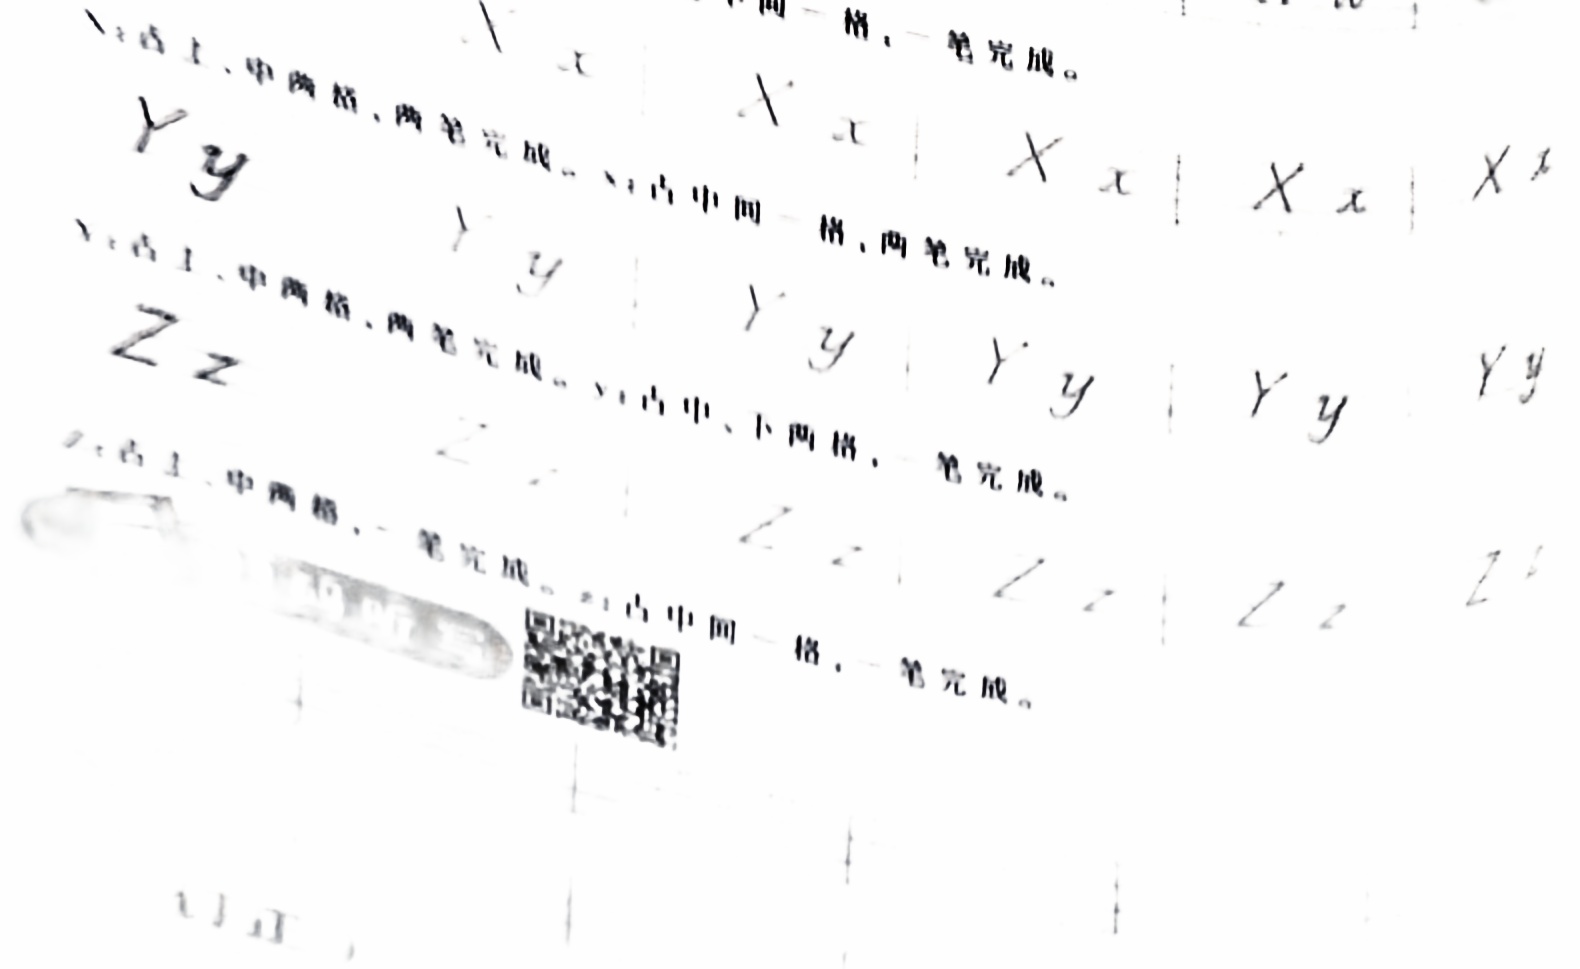 一格,一笔完成。
X x X x X x X x X x
X:占上、中两格,两笔完成。x:占中间一格,两笔完成。
Y y Y y Y y Y y Y y Y y
Y:占上、中两格,两笔完成。y:占中、下两格,一笔完成。
Z z Z z Z z Z z Z z Z
Z:占上、中两格,一笔完成。z:占中间一格,一笔完成。